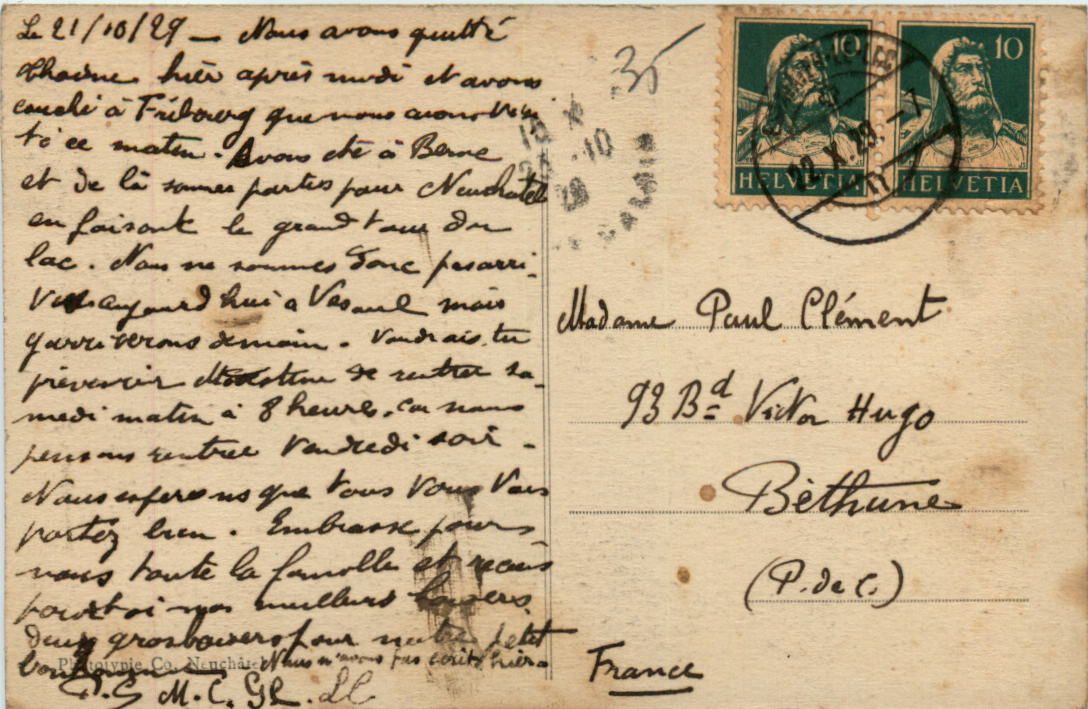 Le 21/10/29 – Nous avons quitté
hier après midi et avons
couché à Fribourg que nous avons visi
té ce matin. Avons été à Berne
et de là sommes partis pour Neuchatel
en faisant le grand tour du
lac. Nous ne sommes donc pas arri-
vés aujourd'hui à Vesoul mais
y arriverons demain. Voudrais-tu
prévenir de rentrer sa-
medi matin à 8 heures, car nous
pensons rentrer Vendredi soir –
Nous espérons que vous vous
portez bien. Embrasse pour
nous toute la famille et reçois
pour toi nos meilleurs baisers.
Deux gros baisers pour notre petit
Phototypie Co. Neuchâtel
Nous n'avons pas écrit hier
P.C M.C. GC. LC
35
HELVETIA 10
HELVETIA 10
22.X.29.-7
Madame Paul Clément
93 Bd Victor Hugo
Béthune
(P. de C.)
France